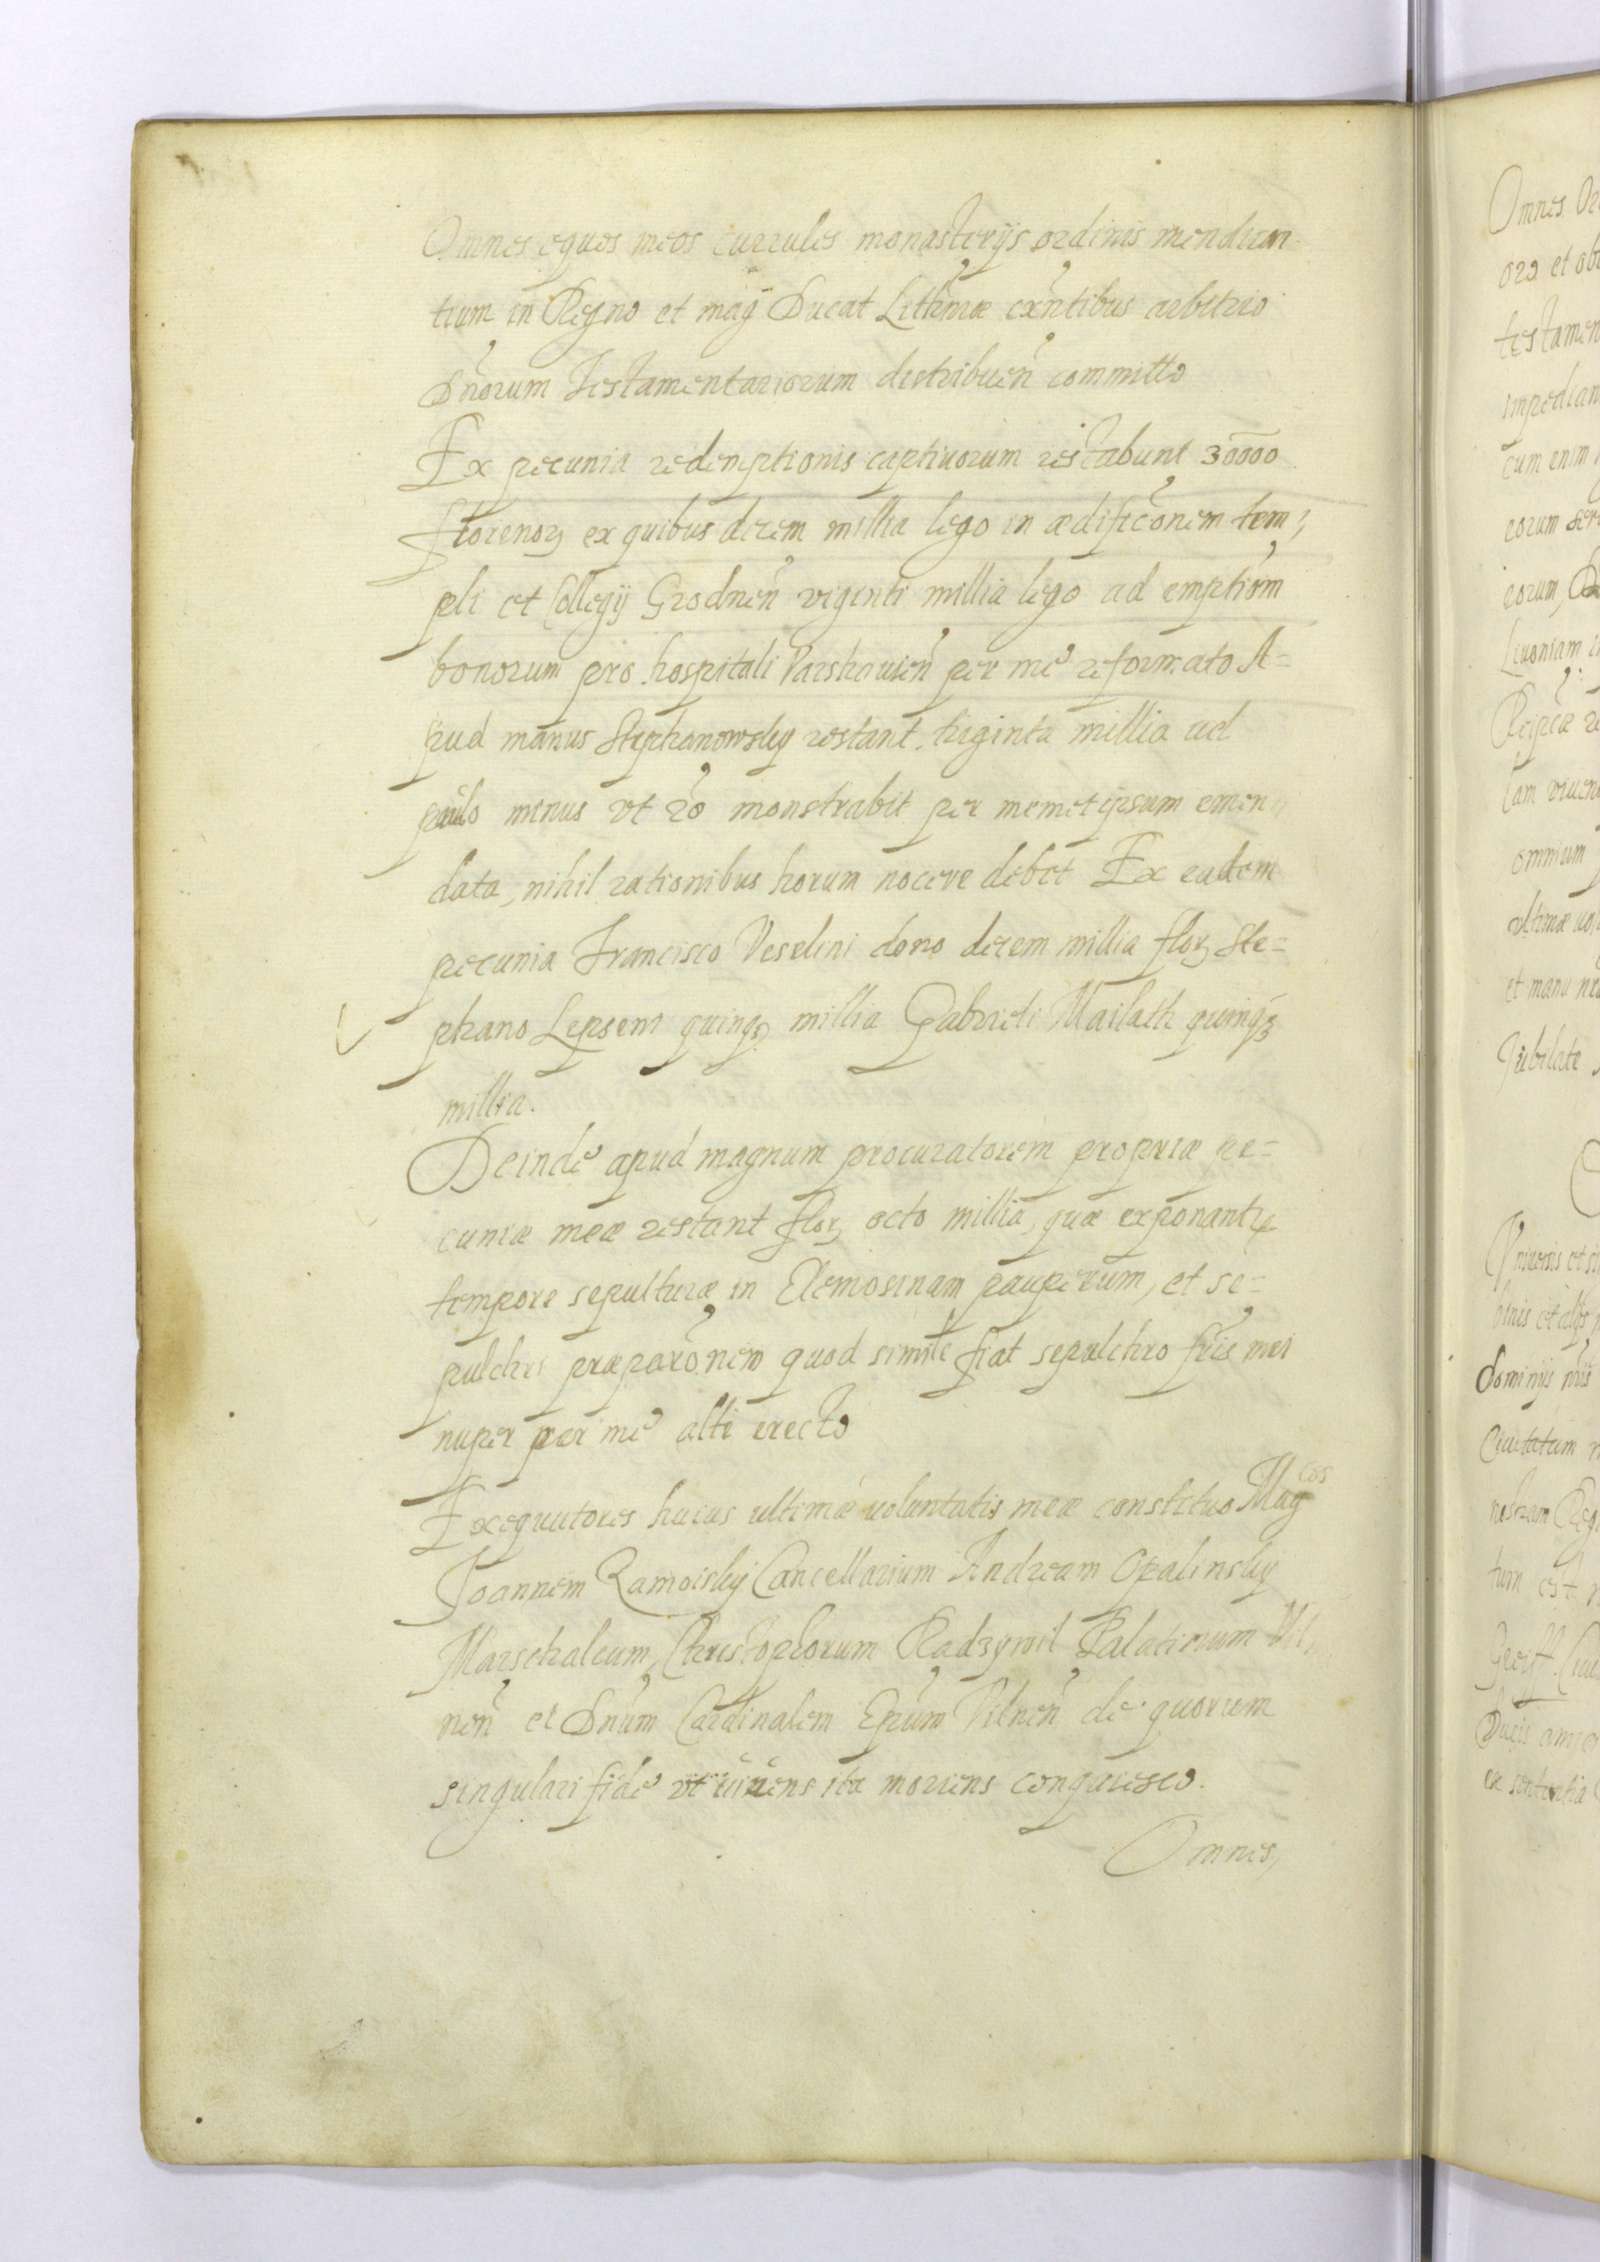 Omnes equos meos currules monasterijs ordinis mendican-
tium in Regno et mag Ducat Lithniæ exntibus arbitrio
Dnorum Testamentariorum distribuen committo
Ex pecunia redemptionis captiuorum restabunt 30000
florenor ex quibus decem millia lego in ædificonem tem,
pli et Collegij Grodnen viginti millia lego ad emptiom
bonorum pro hospitali Varshauien per me reformato A=
pud manus Stephanowsky restant triginta millia uel
paulo minus vt ro monstrabit per memet ipsum emen
data, nihil rationibus horum nocere debet Ex eadem
pecunia Francisco Veselini dono decem millia flor Ste=
phano Lepseni quinq millia Gabrieli Mailath quinq
millia.
Deinde apud magnum procuratorem propriæ pe=
cuniæ meæ restant flor octo millia, quæ exponantur
tempore sepulturæ in Elemosinam pauperum, et se=
pulchri præparonem quod simile fiat sepulchro fris mei
nuper per me alti erecto
Exequutores huius ultimæ voluntatis meæ constituo Magcos
Joannem Zamoisky Cancellarium Andream Opalinsky
Marschalcum, Christophorum Radzywil Palatinum Vil
nen et Dnum Cardinalem Epum Vilnen de quorum
singulari fide vt uiuens ita moriens conquiesco.
Omnes,
Omnes
et ob
testamen
impedian
cum enim
eorum
eorum,
Liuoniam
omnium
et manu
Jubilate
Vniuersis et
dominijs
Ciuitatum
tum est